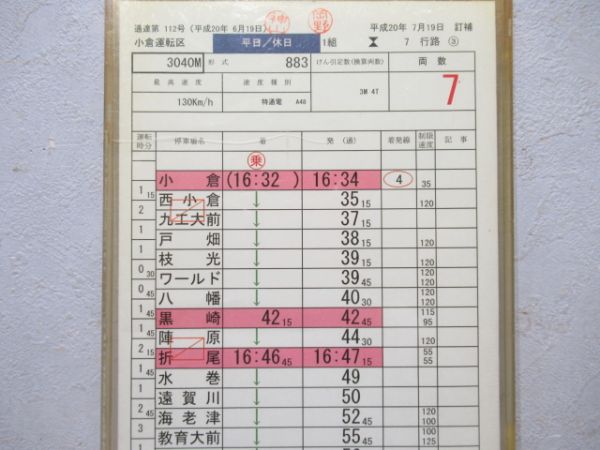 過達第 112号 (平成20年 6月19日) 平成20年 7月19日 訂補
小倉運転区 平日／休日 1組 7 行路 ③
3040M 形式 883 けん引定数(換算両数) 両数
最高速度 速度種別 3M 4T 7
130Km/h 特通電 A48
運転時分 停車場名 着 発 (通) 着発線 制限速度 記事
乗
小倉 (16:32 ) 16:34 4 35
1 15
西小倉 ↓ 35 15 120
2
九工大前 ↓ 37 15
1
戸畑 ↓ 38 15 120
1
枝光 ↓ 39 15 120
0 30
ワールド ↓ 39 45 120
0 45
八幡 ↓ 40 30 120
1 45
黒崎 42 15 42 45 115 95
1 45
陣原 ↓ 44 30 120
2 15
折尾 16:46 45 16:47 15 55 55
1 45
水巻 ↓ 49
1
遠賀川 ↓ 50
2 45
海老津 ↓ 52 45 120 100
3
教育大前 ↓ 55 45 100 125